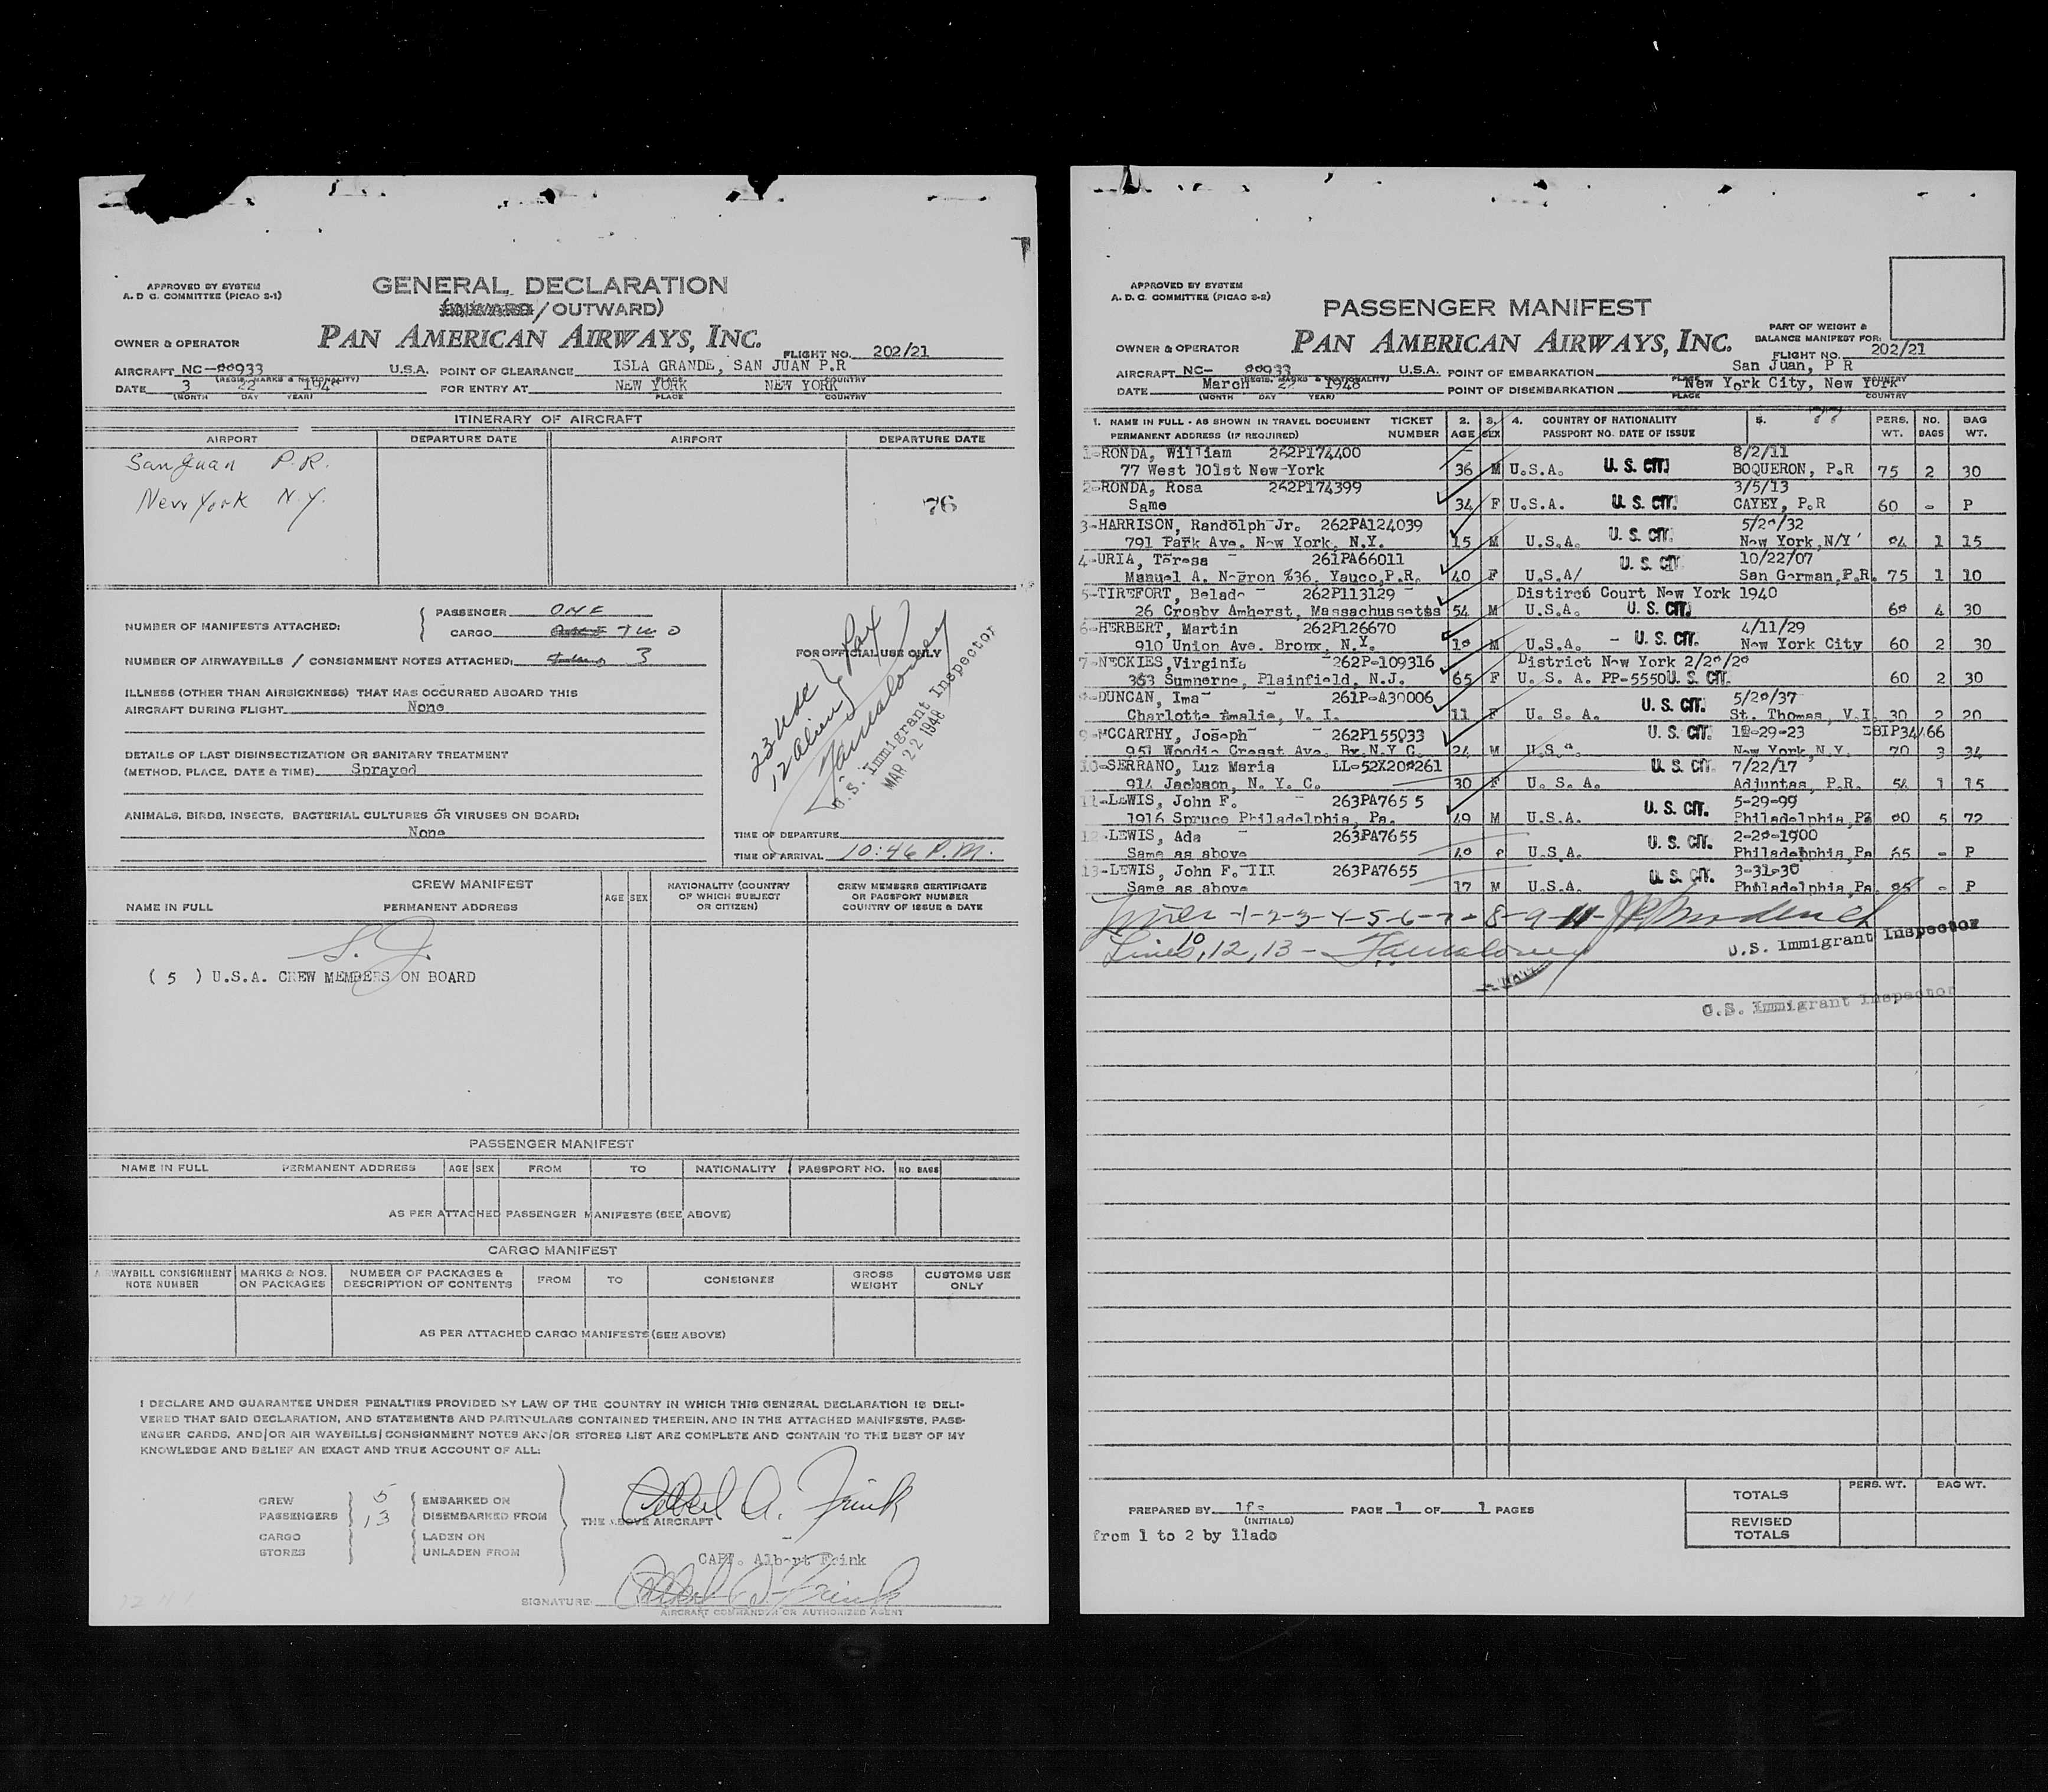 APPROVED BY SYSTEM
A. D C. COMMITTEE (PICAO S-1)
GENERAL DECLARATION
(INWARD / OUTWARD)
OWNER & OPERATOR
PAN AMERICAN AIRWAYS, INC.
FLIGHT NO. 202/21
AIRCRAFT NC-88933 U.S.A. POINT OF CLEARANCE ISLA GRANDE, SAN JUAN P.R
(REGIS. MARKS & NATIONALITY) PLACE COUNTRY
DATE 3 22 1948 FOR ENTRY AT NEW YORK NEW YORK
(MONTH DAY YEAR) PLACE COUNTRY
ITINERARY OF AIRCRAFT
AIRPORT DEPARTURE DATE AIRPORT DEPARTURE DATE
San Juan P.R.
New York N.Y.
76
NUMBER OF MANIFESTS ATTACHED:
PASSENGER ONE
CARGO TWO
NUMBER OF AIRWAYBILLS / CONSIGNMENT NOTES ATTACHED: 3
ILLNESS (OTHER THAN AIRSICKNESS) THAT HAS OCCURRED ABOARD THIS
AIRCRAFT DURING FLIGHT None
DETAILS OF LAST DISINSECTIZATION OR SANITARY TREATMENT
(METHOD, PLACE, DATE & TIME) Sprayed
ANIMALS, BIRDS, INSECTS, BACTERIAL CULTURES OR VIRUSES ON BOARD:
None
FOR OFFICIAL USE ONLY
U.S. Immigrant Inspector
MAR 22 1948
TIME OF DEPARTURE
TIME OF ARRIVAL 10:46 P.M.
CREW MANIFEST
NAME IN FULL PERMANENT ADDRESS AGE SEX
NATIONALITY (COUNTRY
OF WHICH SUBJECT
OR CITIZEN)
CREW MEMBERS CERTIFICATE
OR PASSPORT NUMBER
COUNTRY OF ISSUE & DATE
S. J.
( 5 ) U.S.A. CREW MEMBERS ON BOARD
PASSENGER MANIFEST
NAME IN FULL PERMANENT ADDRESS AGE SEX FROM TO NATIONALITY PASSPORT NO. NO BAGS
AS PER ATTACHED PASSENGER MANIFESTS (SEE ABOVE)
CARGO MANIFEST
AIRWAYBILL CONSIGNMENT
NOTE NUMBER
MARKS & NOS.
ON PACKAGES
NUMBER OF PACKAGES &
DESCRIPTION OF CONTENTS
FROM TO CONSIGNEE
GROSS
WEIGHT
CUSTOMS USE
ONLY
AS PER ATTACHED CARGO MANIFESTS (SEE ABOVE)
I DECLARE AND GUARANTEE UNDER PENALTIES PROVIDED BY LAW OF THE COUNTRY IN WHICH THIS GENERAL DECLARATION IS DELI-
VERED THAT SAID DECLARATION, AND STATEMENTS AND PARTICULARS CONTAINED THEREIN, AND IN THE ATTACHED MANIFESTS, PASS-
ENGER CARDS, AND/OR AIR WAYBILLS/CONSIGNMENT NOTES AND/OR STORES LIST ARE COMPLETE AND CONTAIN TO THE BEST OF MY
KNOWLEDGE AND BELIEF AN EXACT AND TRUE ACCOUNT OF ALL:
CREW 5 EMBARKED ON
PASSENGERS 13 DISEMBARKED FROM
CARGO LADEN ON
STORES UNLADEN FROM
THE ABOVE AIRCRAFT
Albert A. Frink
CAPT. Albert Frink
SIGNATURE: Albert A. Frink
AIRCRAFT COMMANDER OR AUTHORIZED AGENT
APPROVED BY SYSTEM
A. D. C. COMMITTEE (PICAO S-2)
PASSENGER MANIFEST
OWNER & OPERATOR
PAN AMERICAN AIRWAYS, INC.
PART OF WEIGHT &
BALANCE MANIFEST FOR:
FLIGHT NO. 202/21
AIRCRAFT NC- 88933 U.S.A. POINT OF EMBARKATION San Juan, P R
(REGIS. MARKS & NATIONALITY) PLACE COUNTRY
DATE March 22 1948 POINT OF DISEMBARKATION New York City, New York
(MONTH DAY YEAR) PLACE COUNTRY
1. NAME IN FULL - AS SHOWN IN TRAVEL DOCUMENT TICKET 2. 3. 4. COUNTRY OF NATIONALITY 5. 77 PERS. NO. BAG
PERMANENT ADDRESS (IF REQUIRED) NUMBER AGE SEX PASSPORT NO. DATE OF ISSUE WT. BAGS WT.
1-RONDA, William 262P174400 8/2/11
77 West 101st New-York 36 M U.S.A. U. S. CIT. BOQUERON, P.R 75 2 30
2-RONDA, Rosa 262P174399 3/5/13
Same 34 F U.S.A. U. S. CIT. CAYEY, P.R 60 - P
3-HARRISON, Randolph Jr. 262PA124039 5/28/32
791 Park Ave. New York, N.Y. 15 M U.S.A. U. S. CIT. New York, N/Y 84 1 15
4-URIA, Teresa 261PA66011 10/22/07
Manuel A. Negron %36, Yauco,P.R. 40 F U.S.A/ U. S. CIT San German,P.R. 75 1 10
5-TIREFORT, Belado 262P113129 Distirct Court New York 1940
26 Crosby Amherst, Massachussetss 54 M U.S.A. U. S. CIT. 68 4 30
6-HERBERT, Martin 262P126670 4/11/29
910 Union Ave. Bronx, N.Y. 18 M U.S.A. - U. S. CIT. New York City 60 2 30
7-NECKIES,Virginia 262P-109316 District New York 2/28/28
353 Sumnerne, Plainfield, N.J. 65 F U. S. A. PP-5550 U. S. CIT. 60 2 30
8-DUNCAN, Ima 261P-A30006 5/20/37
Charlotte Amalie, V. I. 11 F U. S. A. U. S. CIT. St. Thomas, V.I 30 2 20
9-MCCARTHY, Joseph 262P155033 U. S. CIT.
951 Woodie Cresst Ave. Bx.N.Y C. 24 M New York,N.Y. 70 3 34
10-SERRANO, Luz Maria LL-52X208261 U. S. CIT. 7/22/17
914 Jackson, N. Y. C. 30 F U. S. A. Adjuntas, P.R. 54 1 15
11-LEWIS, John F. 263PA765 5 5-29-99
1916 Spruce Philadelphia, Pa. 49 M U.S.A. U. S. CIT. Philadelphia,Pa 80 5 72
12-LEWIS, Ada 263PA7655 2-28-1900
Same as above 48 U.S.A. U. S. CIT. Philadelphia,Pa 65 - P
13-LEWIS, John F. III 263PA7655 3-31-30
Same as above 17 M U.S.A. U. S. CIT. Philadelphia,Pa. - P
Lines -1-2-3-4-5-6-7-8-9-11-
Lines 10, 12, 13 -
U.S. Immigrant Inspector
U.S. Immigrant Inspector
TOTALS PERS. WT. BAG WT.
REVISED
TOTALS
PREPARED BY PAGE 1 OF 1 PAGES
(INITIALS)
from 1 to 2 by llado